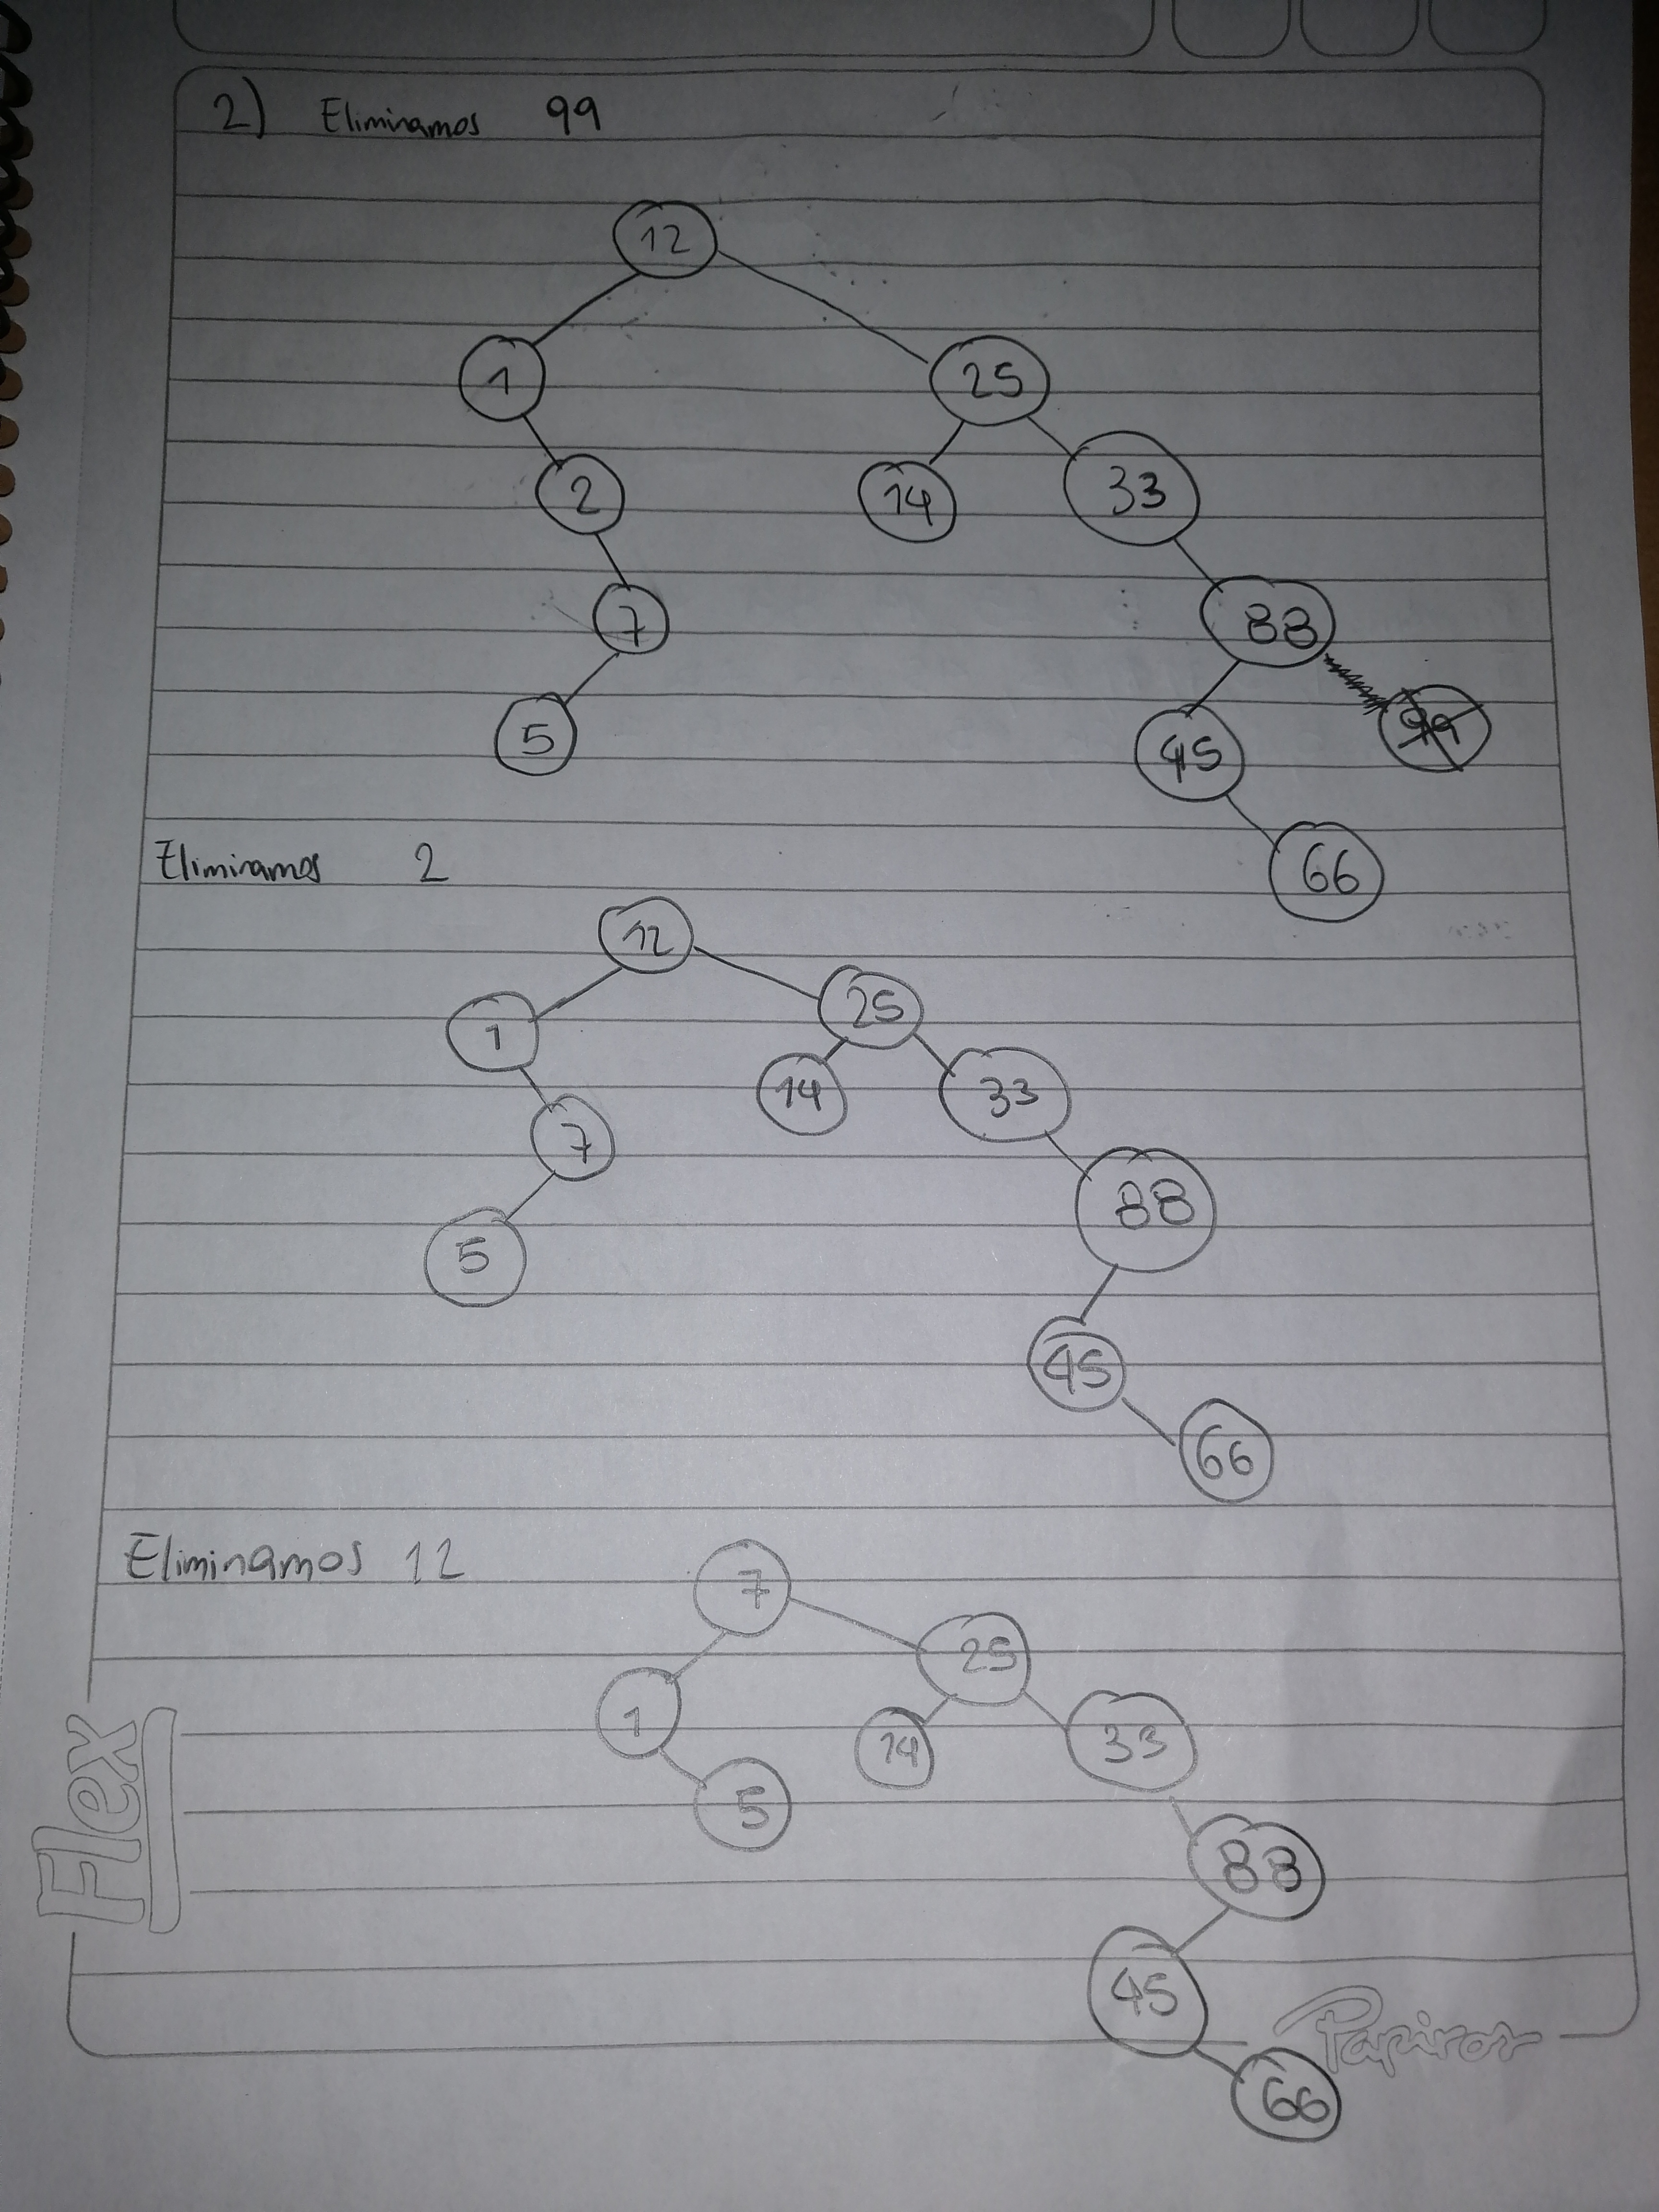 2) Eliminamos 99
12
1 25
2 14 33
7 88
5 45 99
66
Eliminamos 2
12
1 25
14 33
7
88
5
45
66
Eliminamos 12
7
25
1 14 33
5
88
45
66
Flex
Papiros